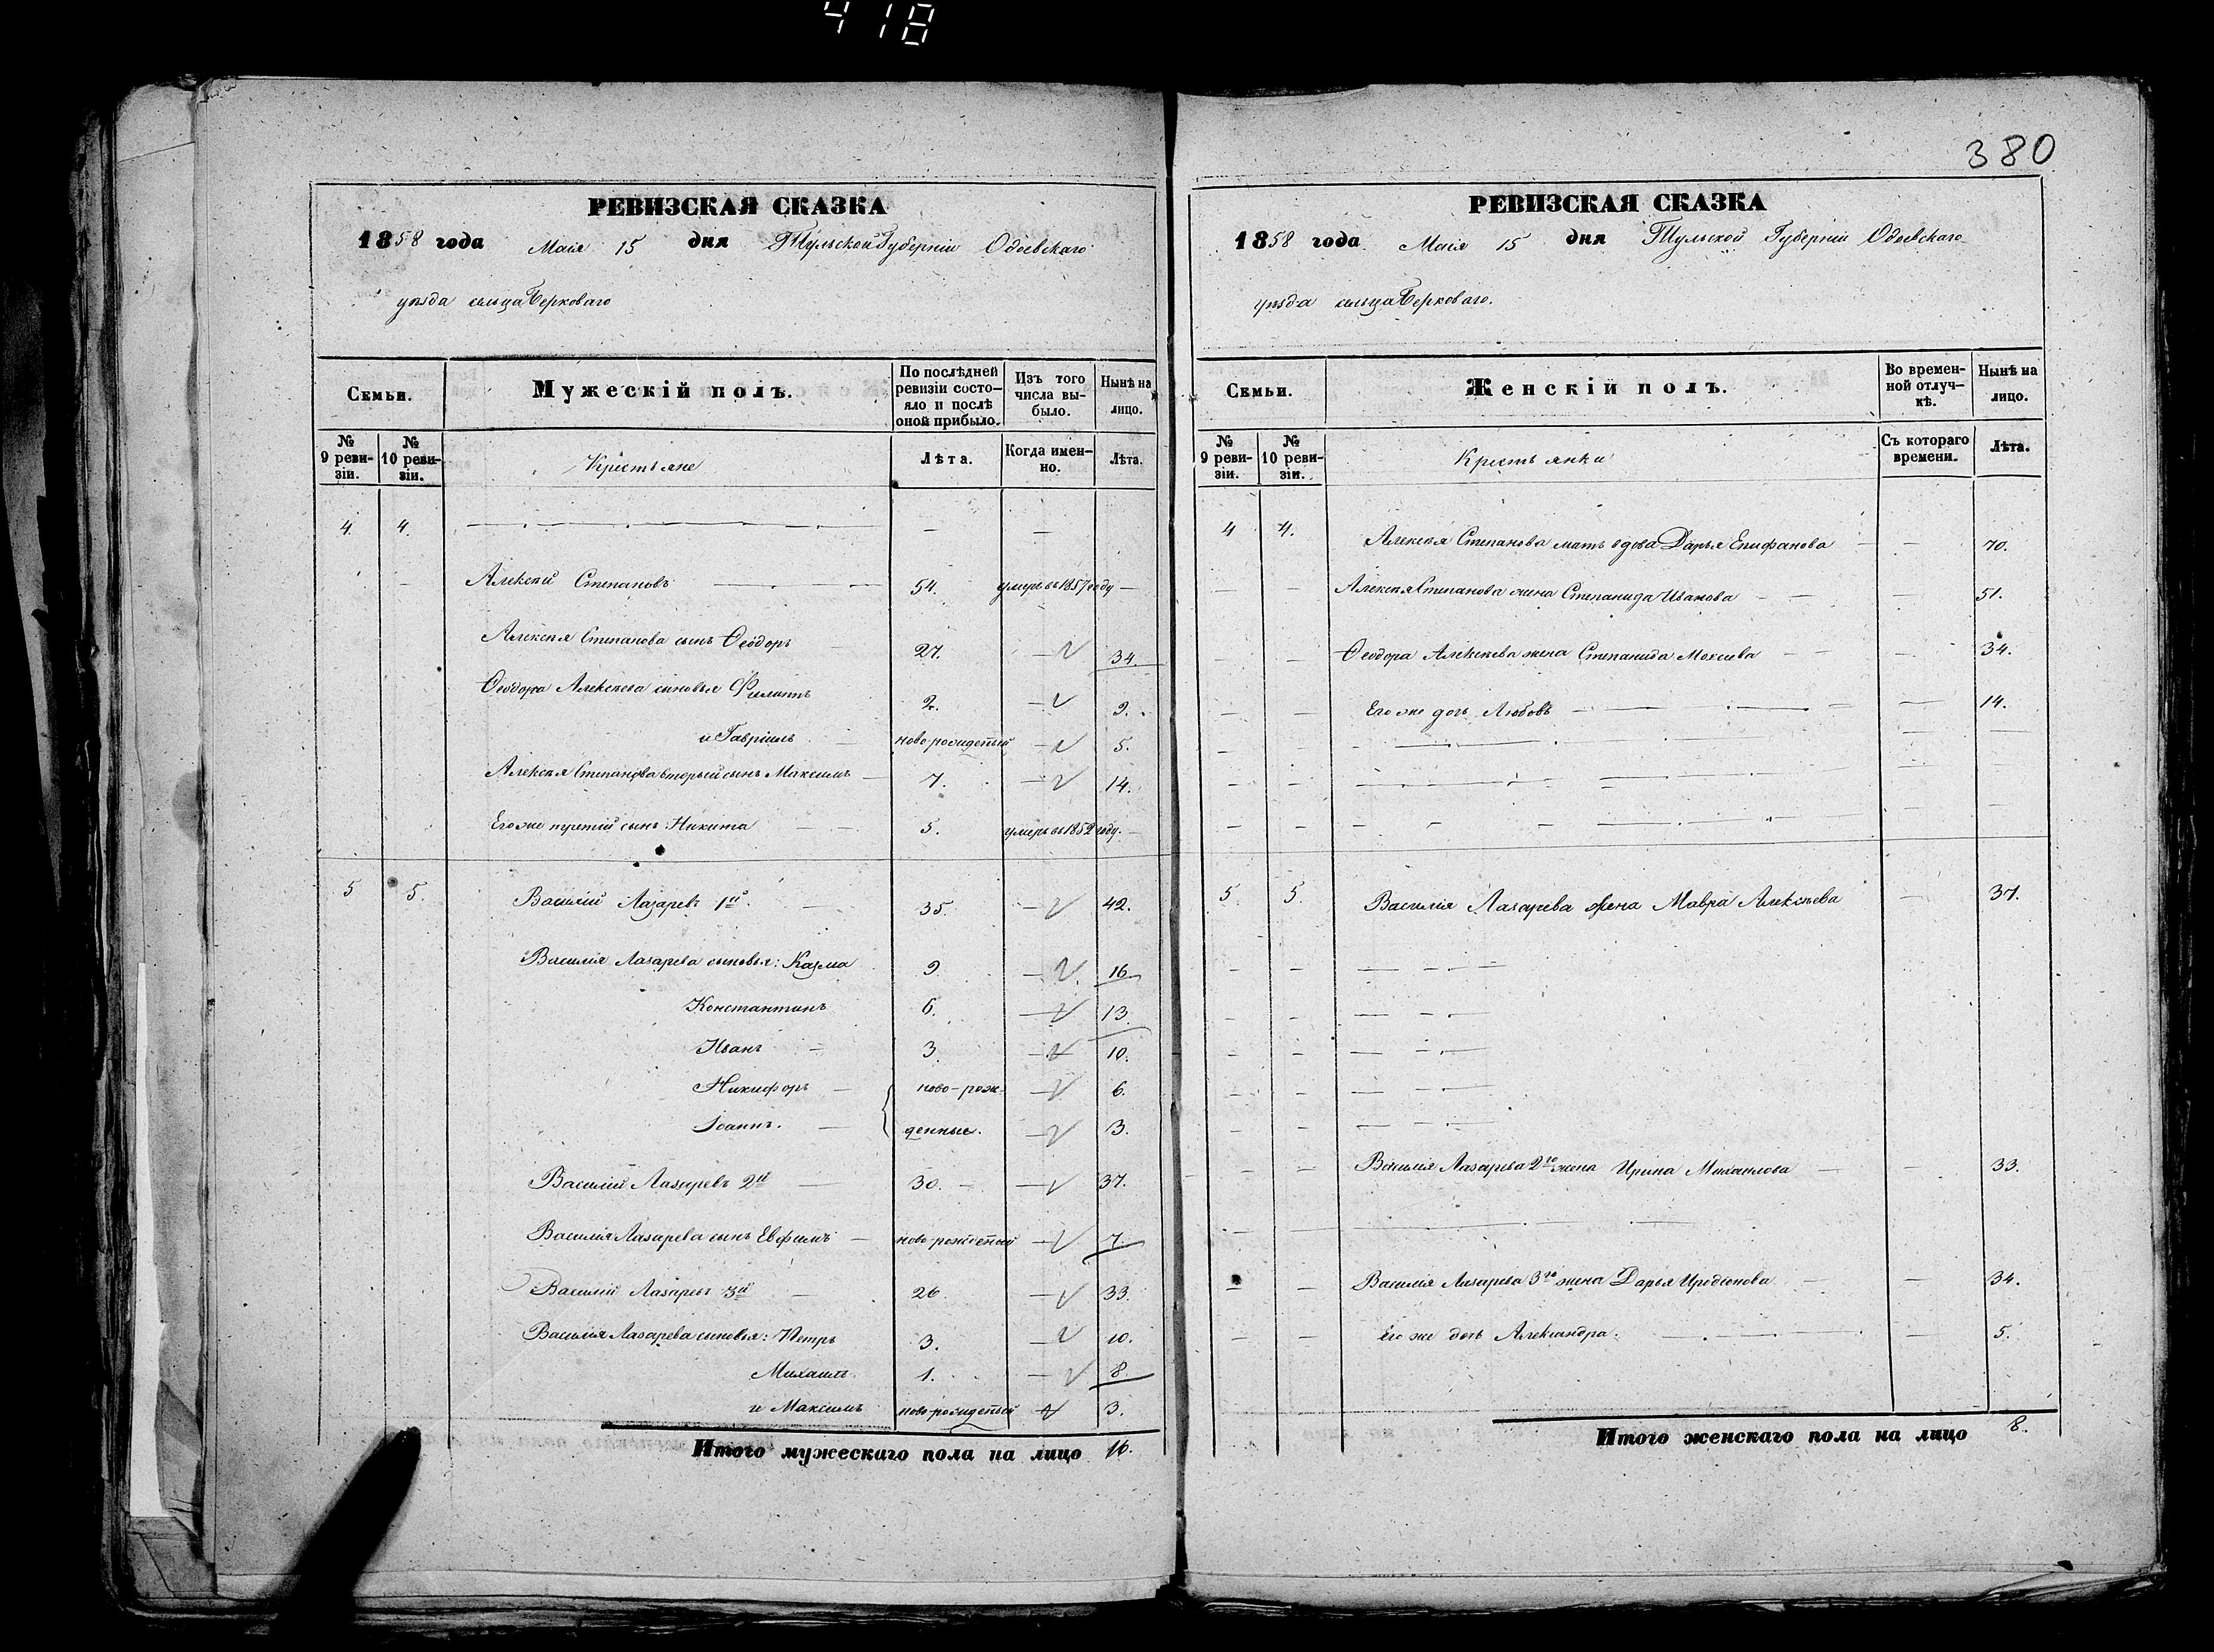 418
380
РЕВИЗСКАЯ СКАЗКА
1858 года Маія 15 дня Тульской Губерніи Одоевскаго
уѣзда сельца Берковаго
Семьи.
Мужескій полъ.
По послѣдней ревизіи состо-
яло и послѣ оной прибыло.
Изъ того числа вы-
было.
Нынѣ на лицо.
№ 9 реви-
зіи.
№ 10 реви-
зіи.
Крестьяне
Лѣта.
Когда имен-
но.
Лѣта.
4. 4. — — —
Алексѣй Степановъ — 54. умеръ въ 1857 году —
Алексѣя Степанова сынъ Ѳеодоръ 27. — 34.
Ѳеодора Алексѣева сыновья Филиппъ 2. — 9.
и Гавріилъ — новорожденый — 5.
Алексѣя Степанова вторый сынъ Максимъ — 7. — 14.
Его же третій сынъ Никита — 5. умеръ въ 1852 году. —
5 5. Василій Лазаревъ 1й. — 35. — 42.
Василія Лазарева сыновья: Казма 9. — 16
Константинъ 6. — 13.
Иванъ — 3. — 10.
Никифоръ — ново-рож- — 6.
Іоаннъ. — денные. — 3.
Василій Лазаревъ 2й — 30. — 37.
Василія Лазарева сынъ Евфимъ — новорожденый — 7.
Василій Лазаревъ 3й — 26 — 33.
Василія Лазарева сыновья: Петръ 3. — 10.
Михаилъ 1. — 8
и Максимъ новорожденый — 3.
Итого мужескаго пола на лицо 16.
РЕВИЗСКАЯ СКАЗКА
1858 года Маія 15 дня Тульской Губерніи Одоевскаго
уѣзда сельца Берковаго.
Семьи.
Женскій полъ.
Во времен-
ной отлуч-
кѣ.
Нынѣ на лицо.
№ 9 реви-
зіи.
№ 10 реви-
зіи.
Крестьянки
Съ котораго времени.
Лѣта.
4 4. Алексѣя Степанова мать вдова Дарья Епифанова — 70.
— — Алексѣя Степанова жена Степанида Иванова — — 51.
— — Ѳеодора Алексѣева жена Степанида Моисеева — — 34.
— — Его же дочь Любовь — — 14.
5. 5. Василія Лазарева жена Мавра Алексѣева — 37.
— — Василія Лазарева 2го жена Ирина Михаилова — — 33.
— — Василія Лазарева 3го жена Дарья Иродіонова — — 34.
— — Его же дочь Александра. — — 5.
Итого женскаго пола на лицо 8.